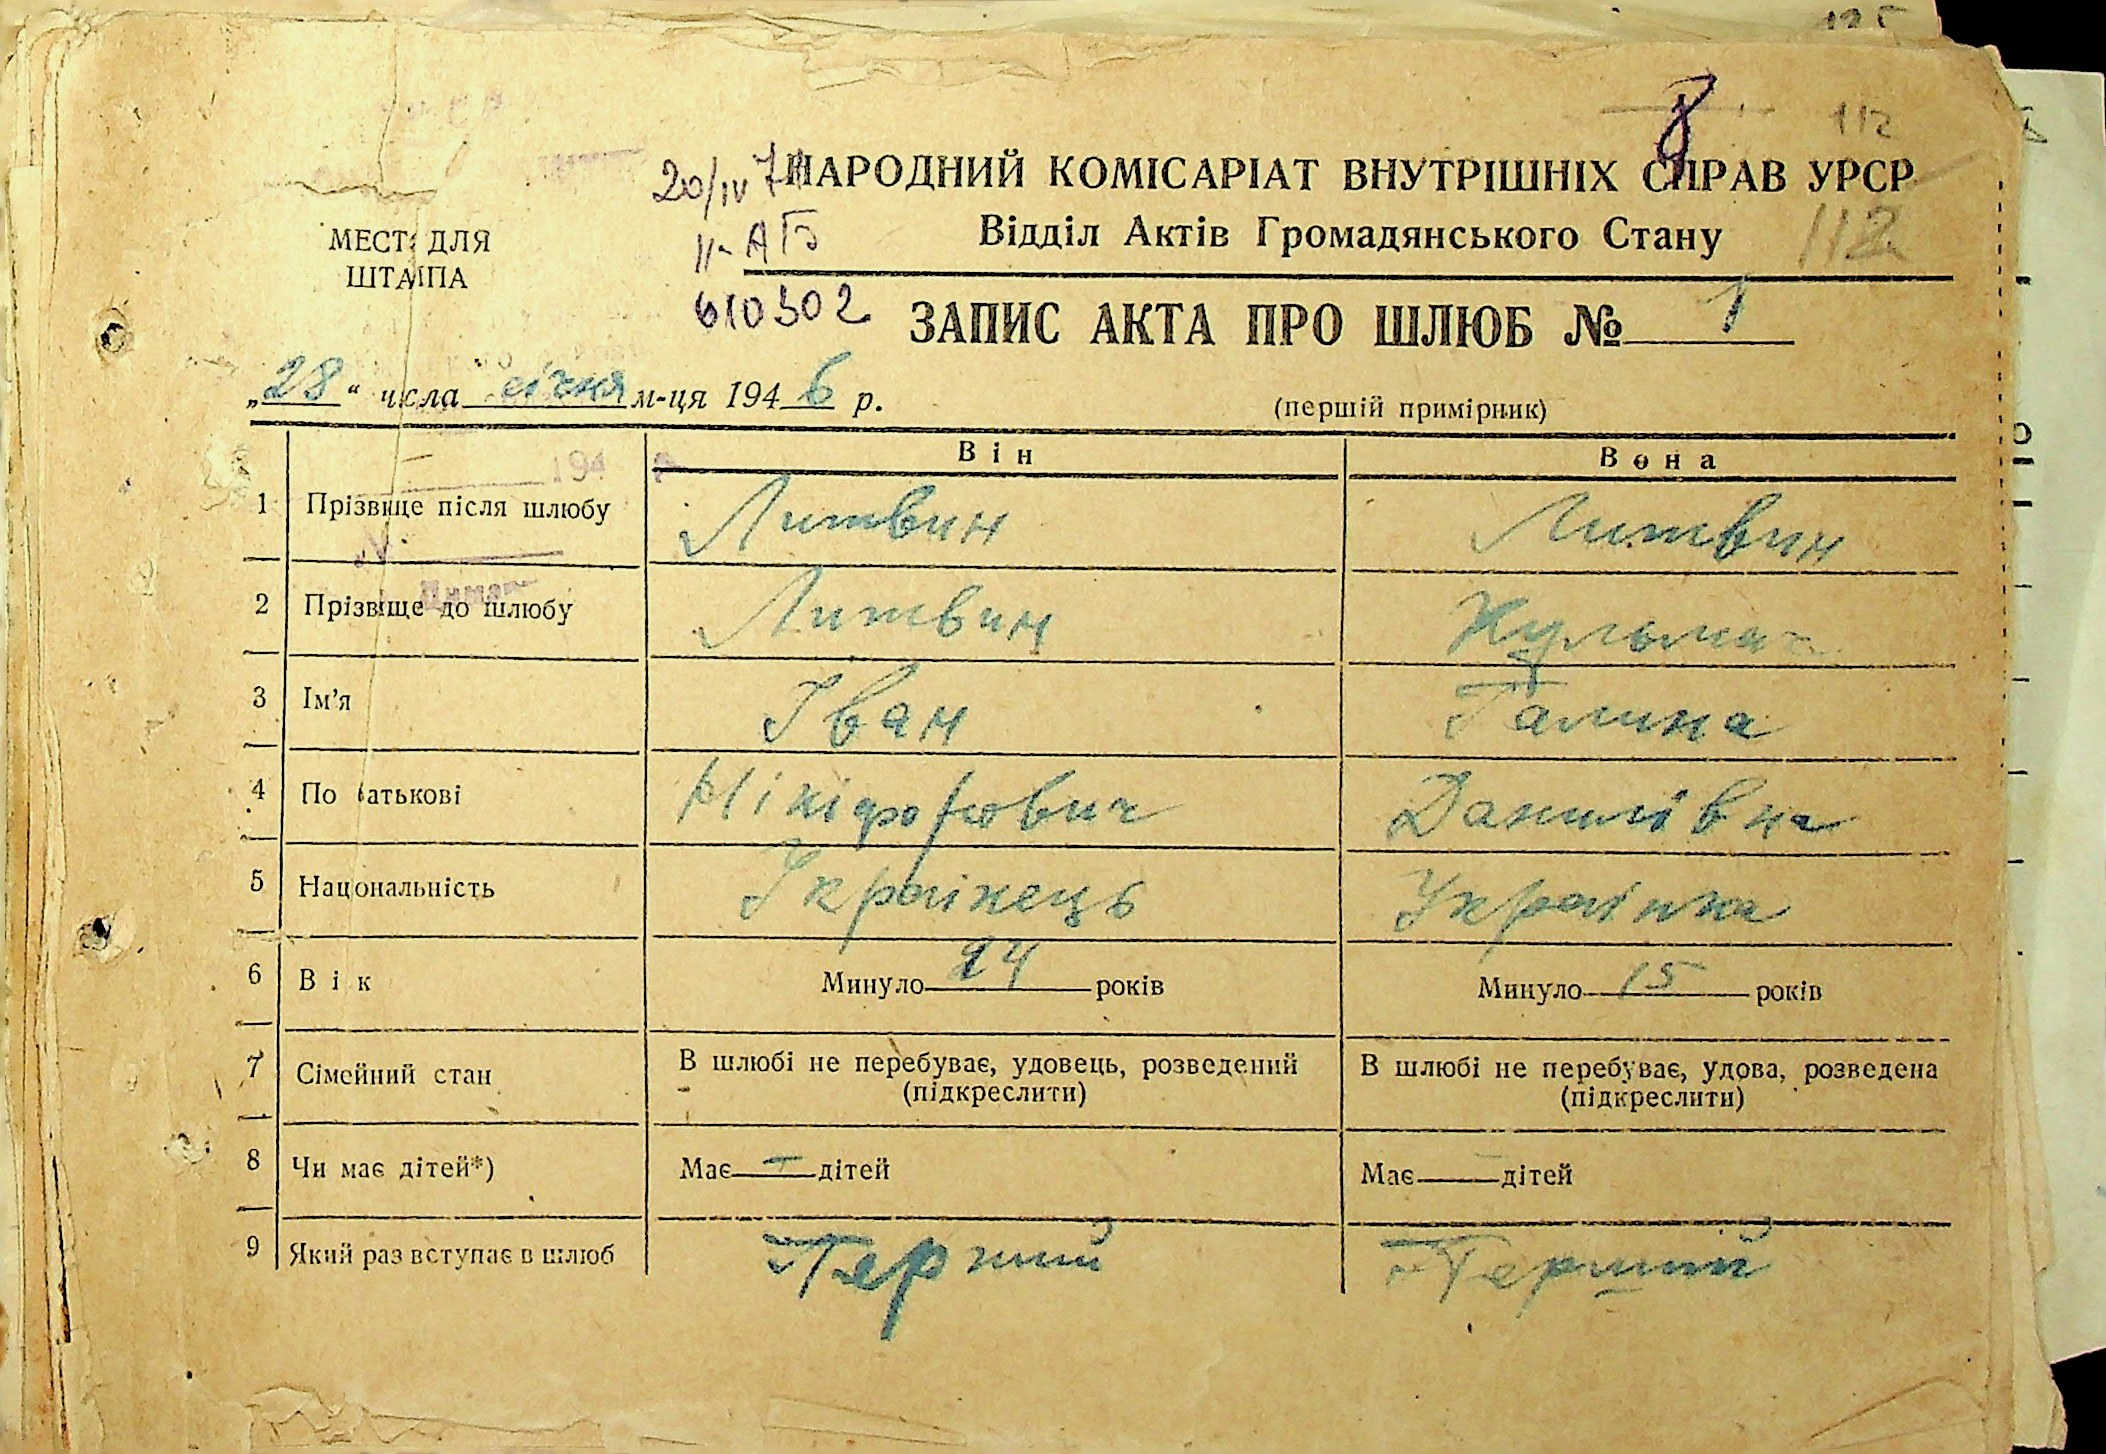 112
НАРОДНИЙ КОМІСАРІАТ ВНУТРІШНІХ СПРАВ УРСР
20/IV
Відділ Актів Громадянського Стану
112
МЕСТ ДЛЯ
ШТАМПА
II-АГБ
610302
ЗАПИС АКТА ПРО ШЛЮБ № 1
„28“ числа січня м-ця 1946 р.
(першій примірник)
Він Вона
194
1 Прізвище після шлюбу Литвин Литвин
2 Прізвіще до шлюбу Литвин
3 Ім'я Іван Галина
4 По батькові Нікіфорович Данилівна
5 Національність Українець Українка
6 Вік Минуло 24 років Минуло 15 років
7 Сімейний стан В шлюбі не перебуває, удовець, розведений В шлюбі не перебуває, удова, розведена
(підкреслити) (підкреслити)
8 Чи має дітей*) Має — дітей Має — дітей
9 Який раз вступає в шлюб Перший Перший